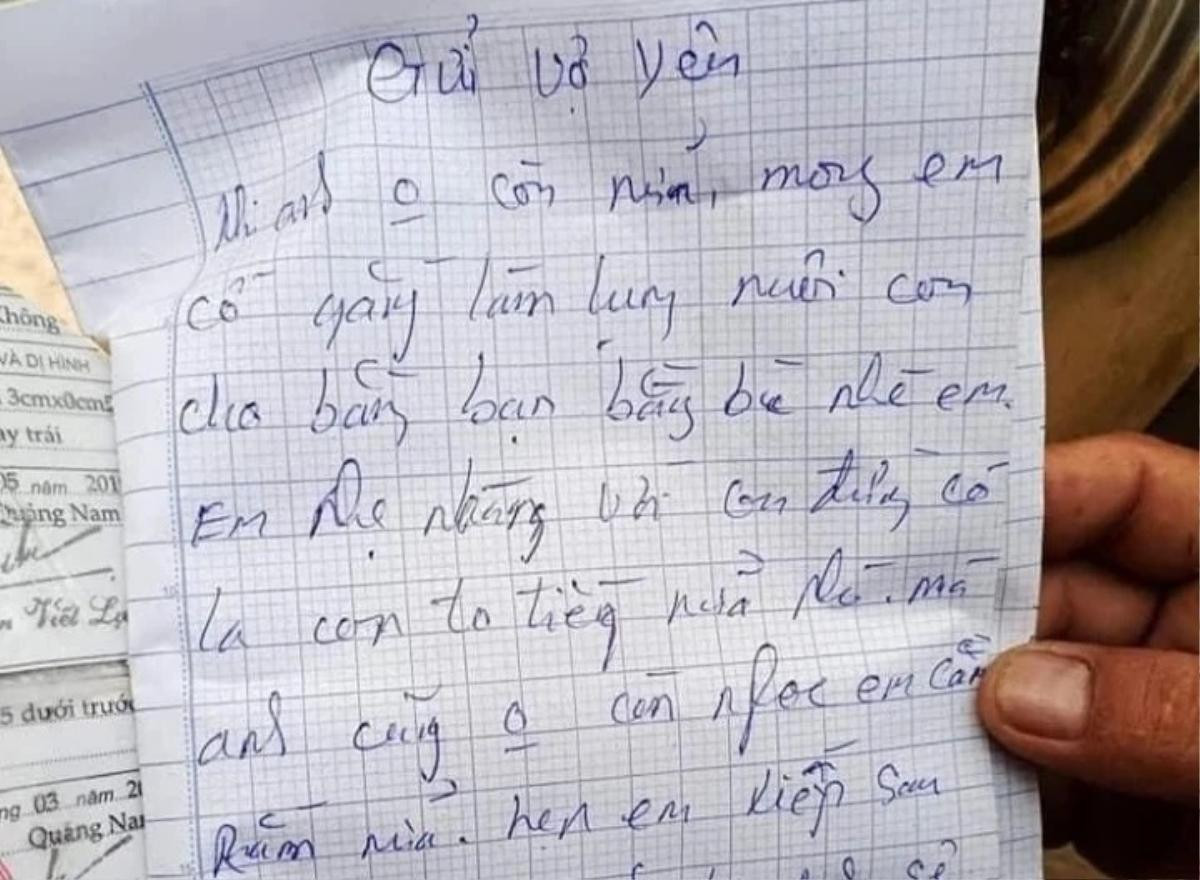 Gửi vợ Yên
Khi anh o còn nữa, mong em
cố gắng làm lụng nuôi con
cho bằng bạn bằng bè nhé em.
Em nhẹ nhàng với con đừng có
la con to tiếng nữa nhé. mà
anh cũng o còn nghe em cằn
Rằn nữa. hẹn em kiếp sau
Không
VÀ DỊ HÌNH
3cmx0cm5
ay trái
05 năm 201
Quảng Nam
Viết
5 dưới trước
ng 03 năm 20
Quảng Na